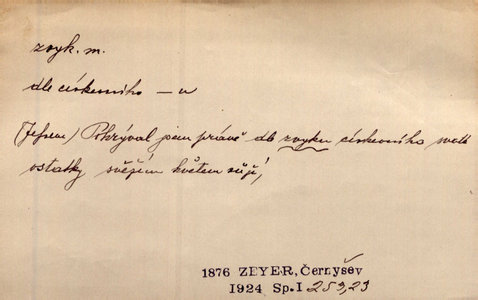 zvyk. m.
dle církevního – u
(Jefrem) Pokrýval jsem právě dle zvyku církevního svaté
ostatky svěžím květem růží,
1876 ZEYER, Černyšev
1924 Sp. I 253,23